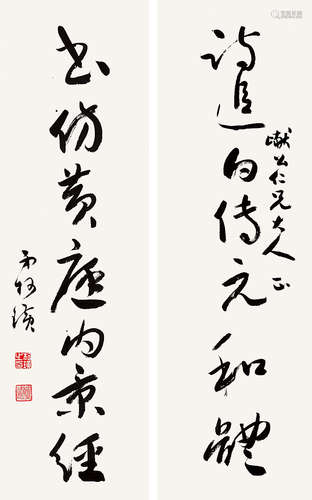 詩追白傅元和體
獻公仁兄大人 正
書仿黃庭內景經